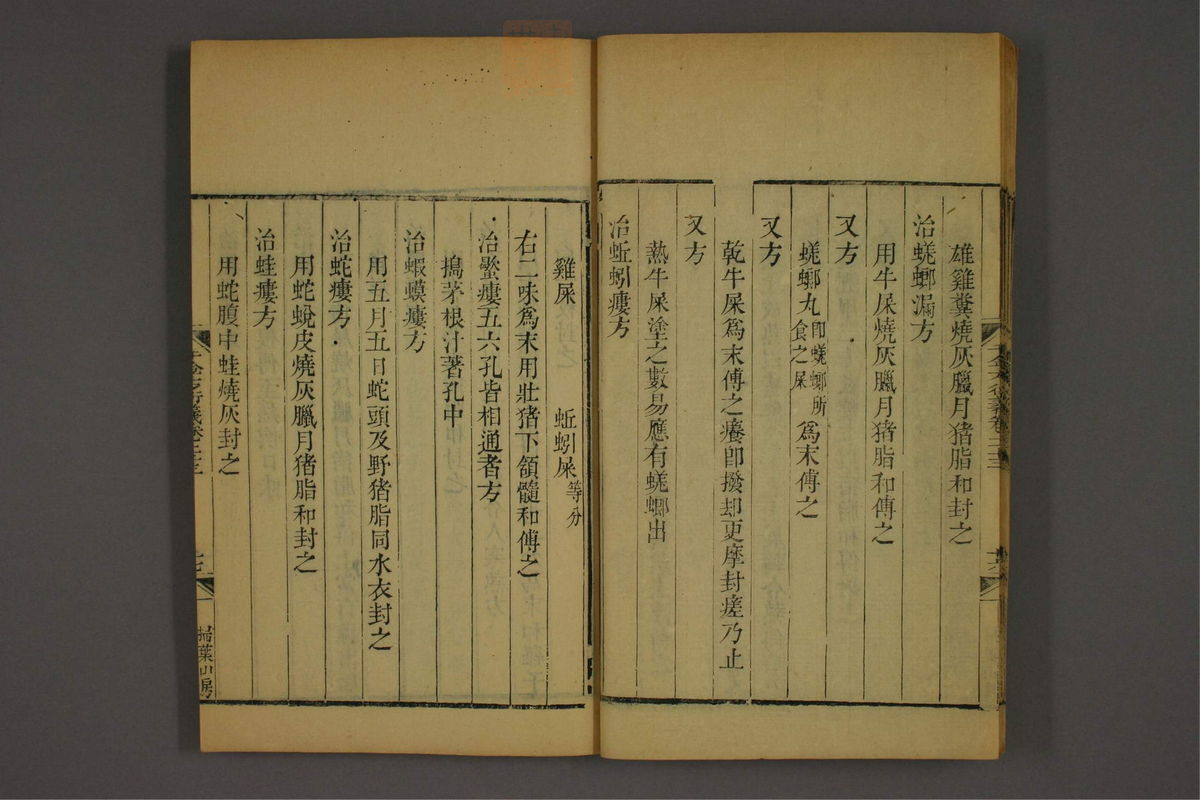 雄雞糞燒灰臘月猪脂和封之
治蜣螂漏方
用牛屎燒灰臘月猪脂和傅之
又方
蜣螂丸卽蜣螂所食之屎爲末傅之
又方
乾牛屎爲末傅之癢卽撥却更摩封瘥乃止
又方
熱牛屎塗之數易應有蜣螂出
治蚯蚓瘻方
雞屎 蚯蚓屎等分
右二味爲末用壯猪下頷髓和傅之
治蠍瘻五六孔皆相通者方
搗茅根汁著孔中
治蝦蟆瘻方
用五月五日蛇頭及野猪脂同水衣封之
治蛇瘻方
用蛇蛻皮燒灰臘月猪脂和封之
治蛙瘻方
用蛇腹中蛙燒灰封之
掃葉山房